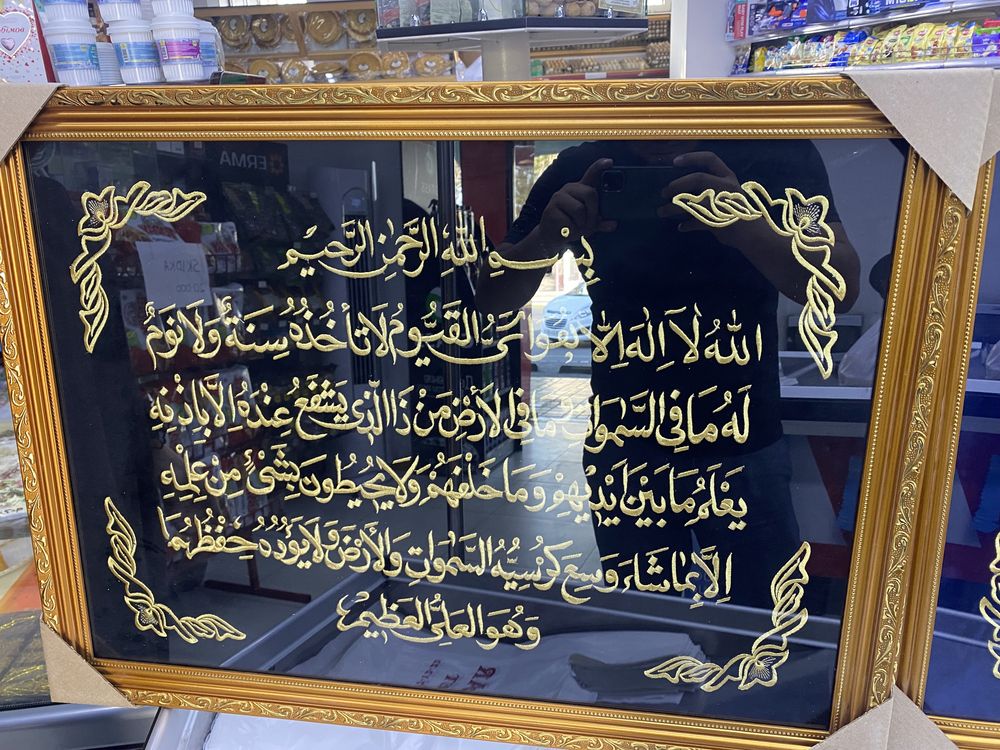 بِسْمِ اللهِ الرَّحْمٰنِ الرَّحِيْمِ
اَللهُ لَآ اِلٰهَ اِلَّا هُوَ اَلْحَيُّ الْقَيُّومُ لَا تَأْخُذُهُ سِنَةٌ وَلَا نَوْمٌ
لَهُ مَا فِي السَّمٰوَاتِ وَمَا فِي الْاَرْضِ مَنْ ذَا الَّذِي يَشْفَعُ عِنْدَهُ اِلَّا بِاِذْنِهِ
يَعْلَمُ مَا بَيْنَ اَيْدِيْهِمْ وَمَا خَلْفَهُمْ وَلَا يُحِيْطُونَ بِشَيْءٍ مِنْ عِلْمِهِ
اِلَّا بِمَا شَاءَ وَسِعَ كُرْسِيُّهُ السَّمٰوَاتِ وَالْاَرْضَ وَلَا يَؤُدُهُ حِفْظُهُمَا
وَهُوَ الْعَلِيُّ الْعَظِيْمُ
ERMA
SKIDKA
20 000